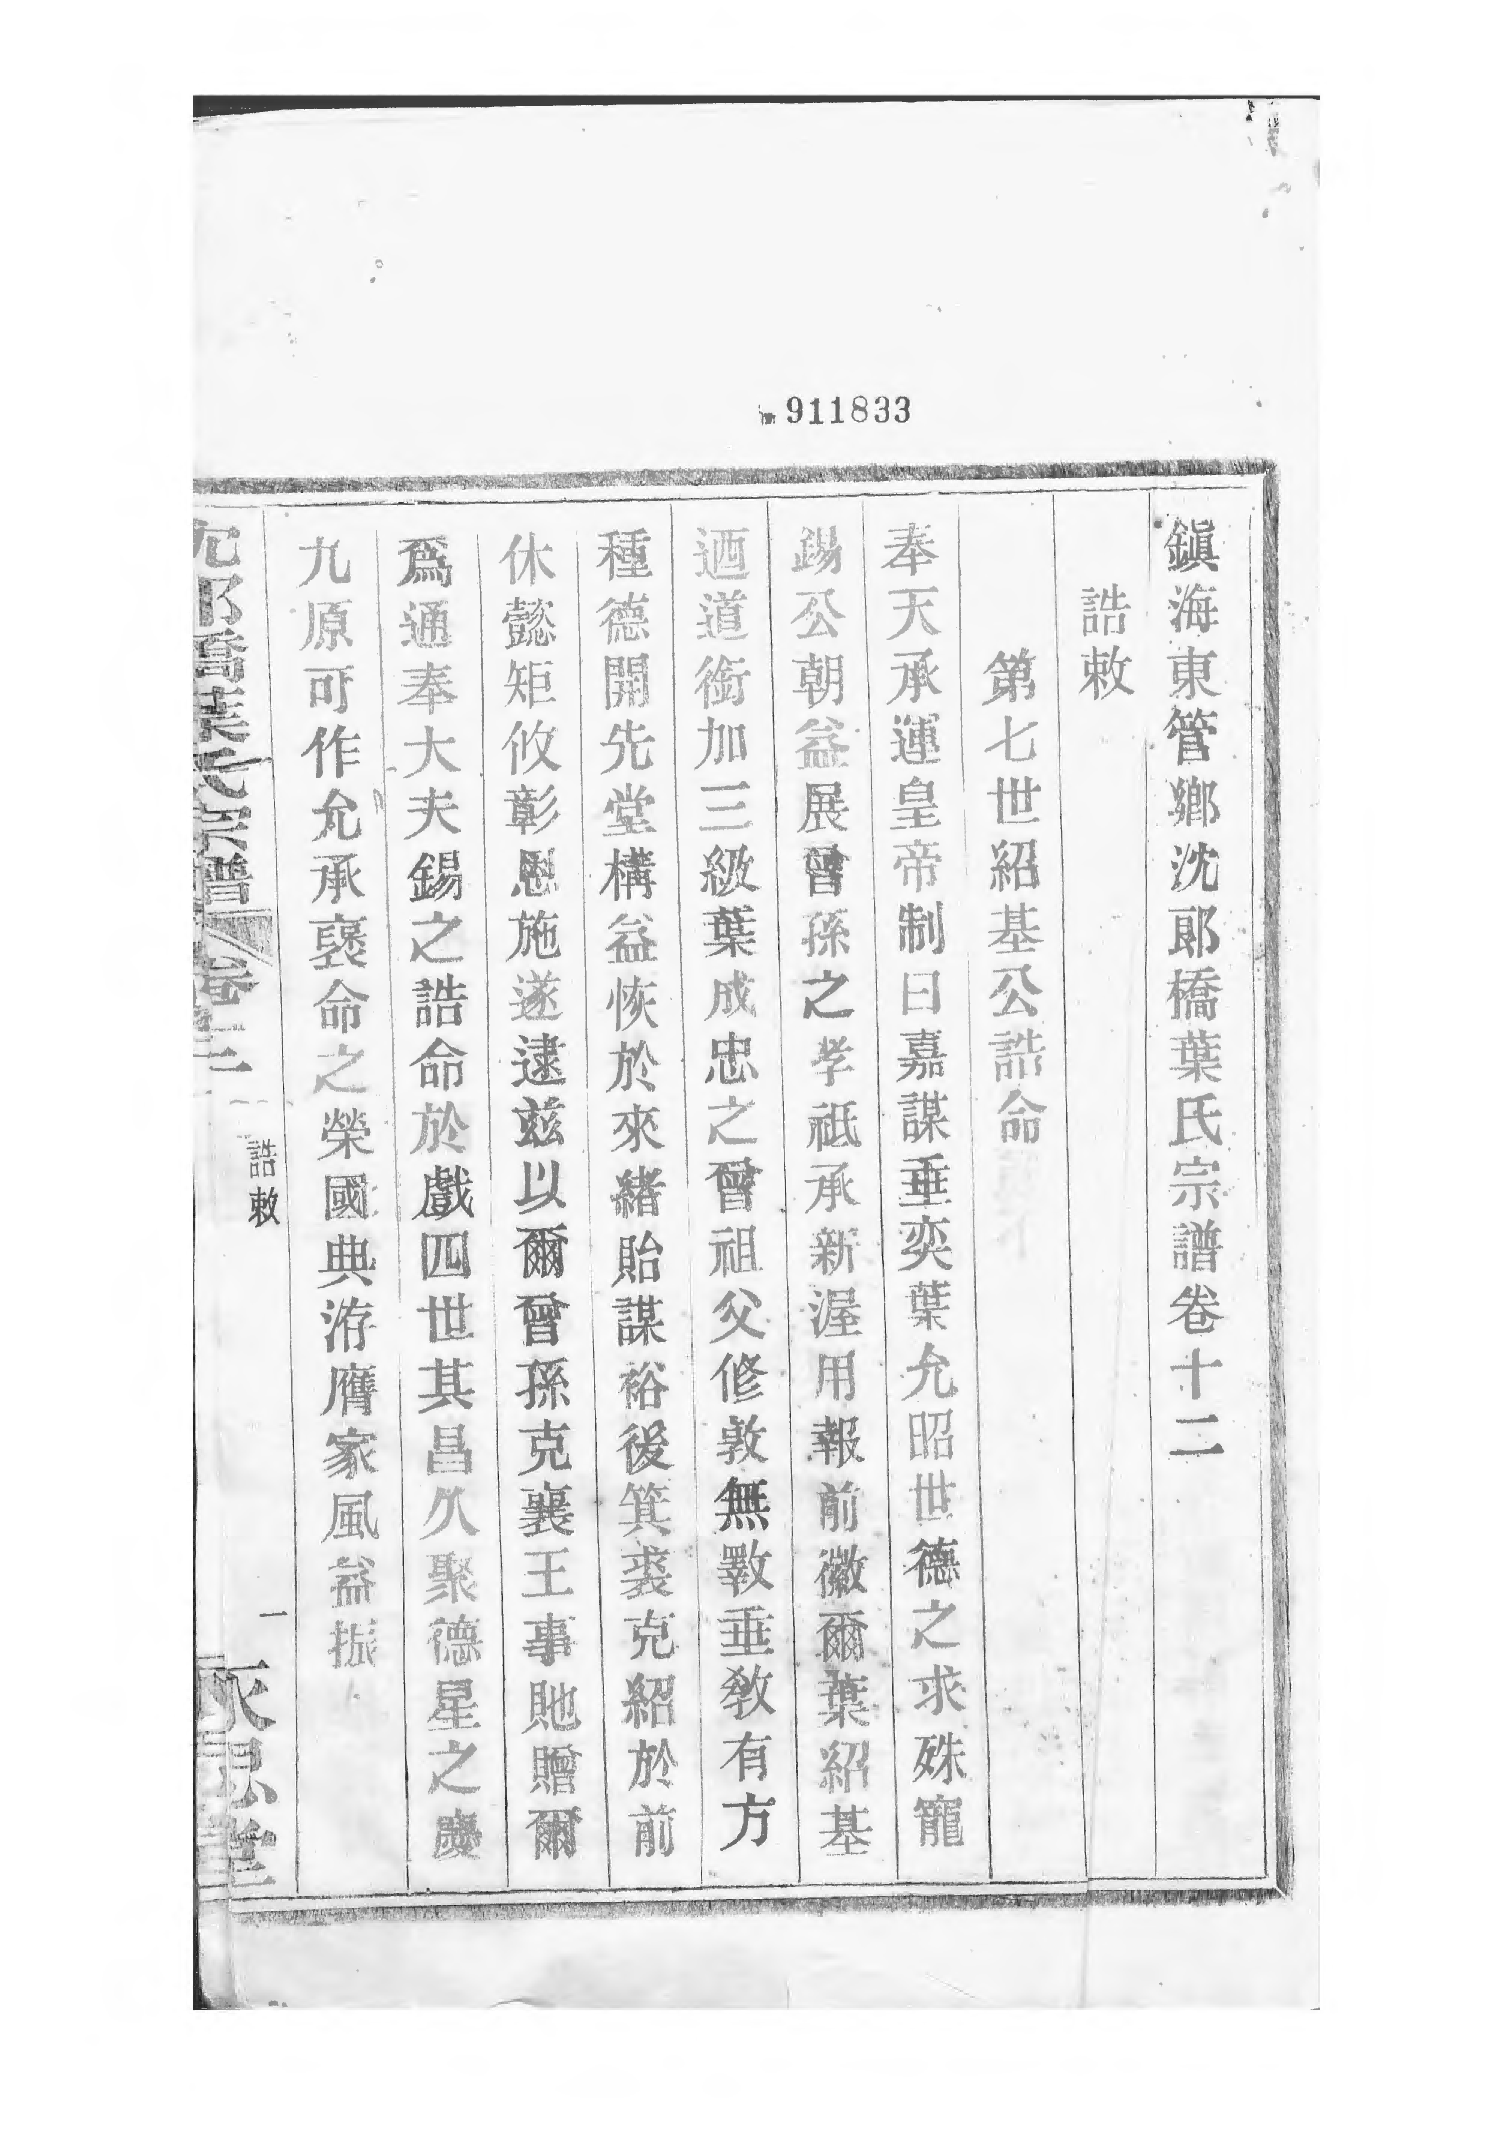 911833
鎮海東管鄉沈郎橋葉氏宗譜卷十二
誥敕
第七世紹基公誥命
奉天承運皇帝制曰嘉謀垂奕葉允昭世德之求殊寵
錫公朝益展曾孫之孝祗承新渥用報前徽爾葉紹基
迺道銜加三級葉成忠之曾祖父修敦無斁垂教有方
種德開先堂構益恢於來緒貽謀裕後箕裘克紹於前
休懿矩攸彰恩施遂逮兹以爾曾孫克襄王事貤贈爾
爲通奉大夫錫之誥命於戲四世其昌久聚德星之慶
九原可作允承襃命之榮國典洊膺家風益振
沈郎橋葉氏宗譜
卷十二
誥敕
一
承思堂